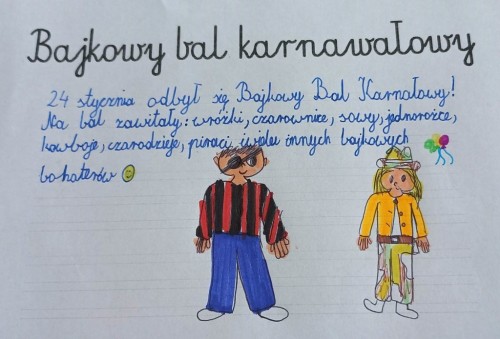 Bajkowy bal karnawałowy
24 stycznia odbył się Bajkowy Bal Karnałowy!
Na bal zawitały: wróżki, czarownice, sowy, jednorożce,
kowboje, czarodzieje, piraci i wiele innych bajkowych
bohaterów